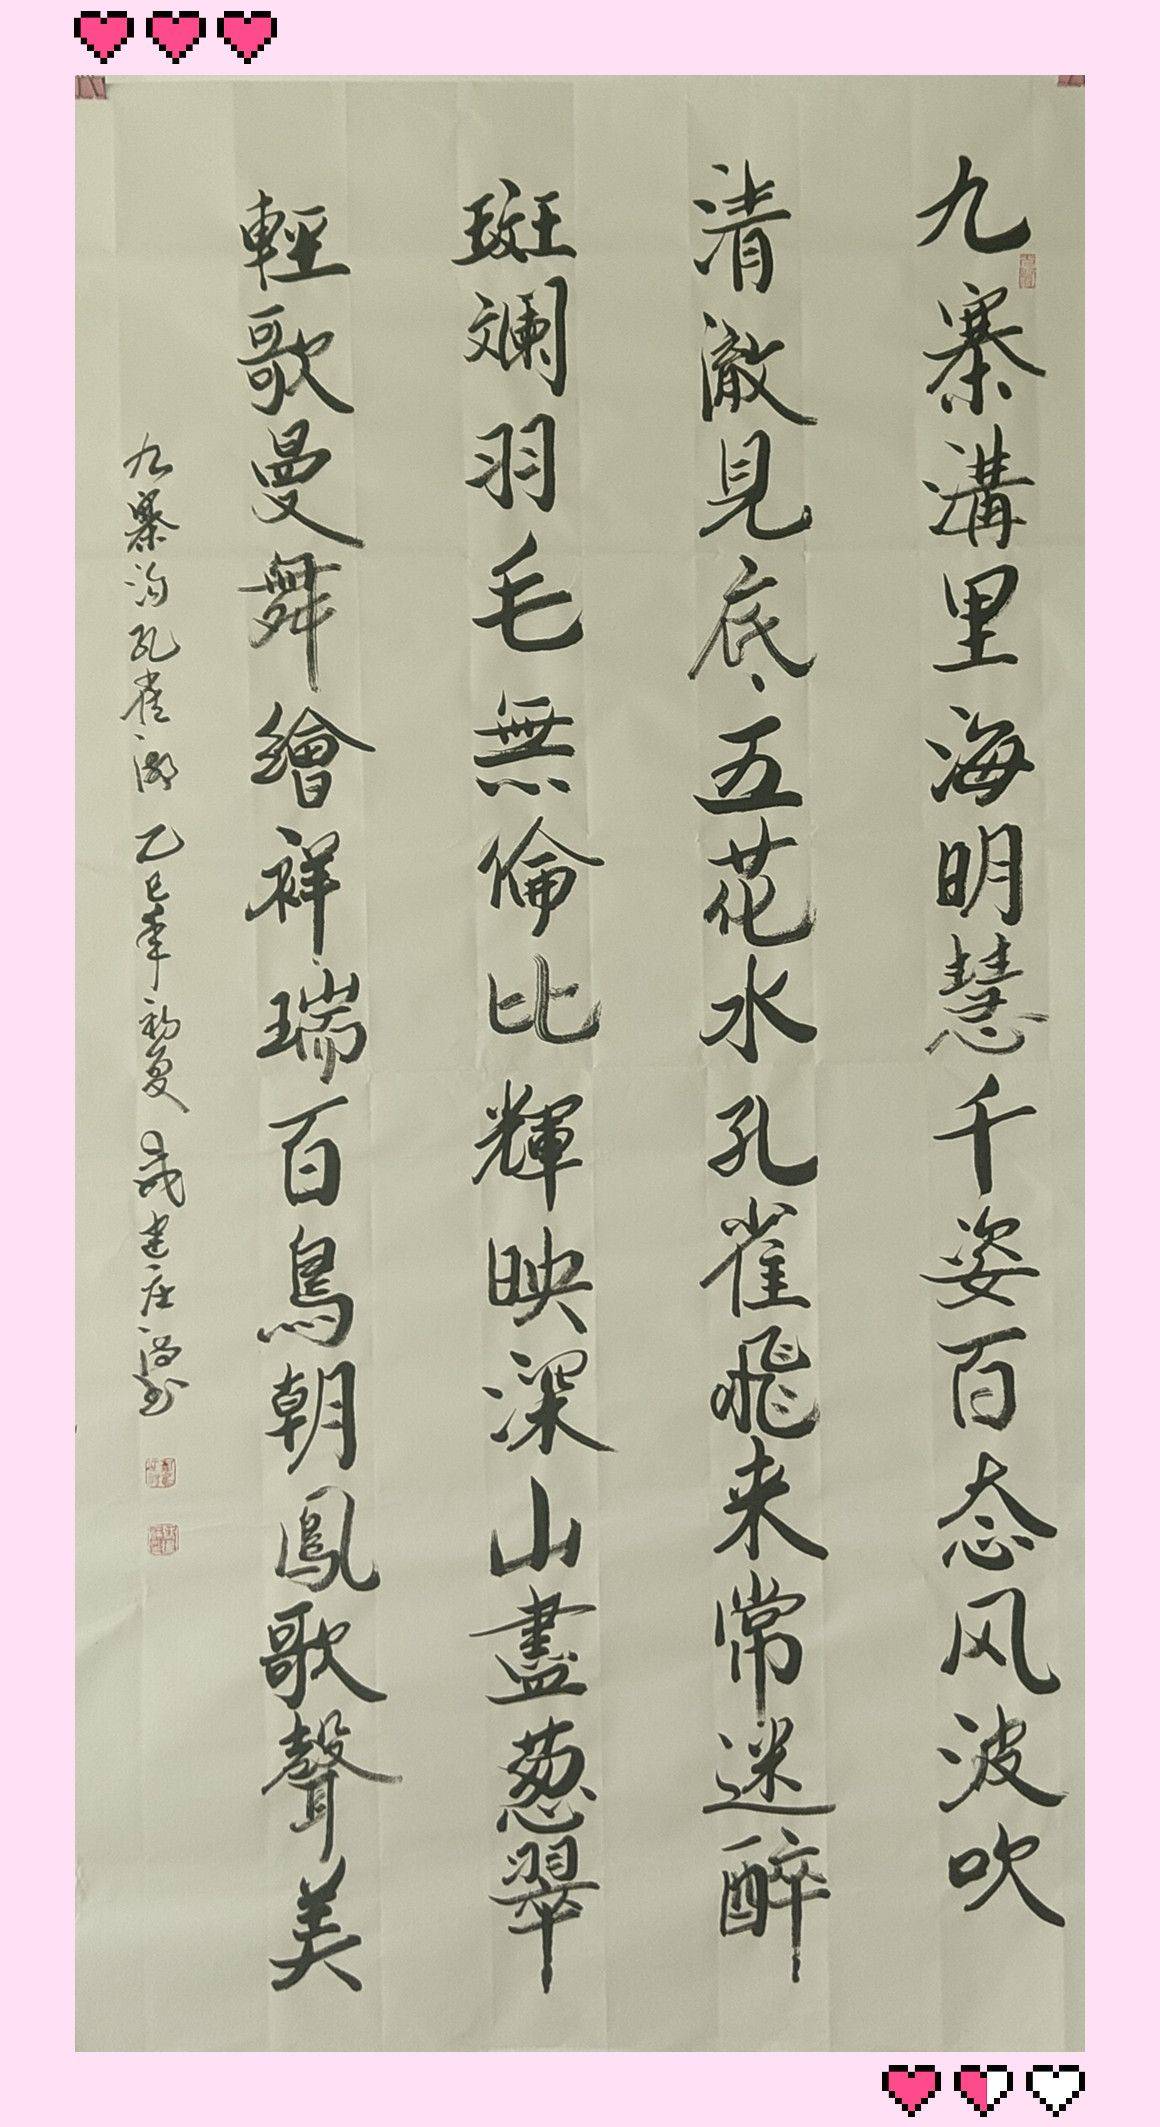 九寨溝里海明慧千姿百态风波吹
清澈見底五花水孔雀飛来常迷醉
斑斕羽毛無倫比輝映深山盡葱翠
輕歌曼舞繪祥瑞百鳥朝鳳歌聲美
九寨沟孔雀湖 乙巳年初夏 成建庄